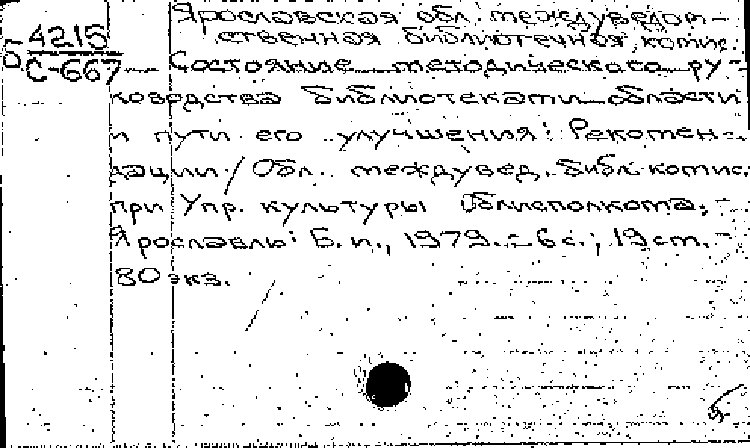 Ярославская обл. междуведом-
Б 4215
ственная библиотечная комис.
С-667
Состояние методического ру-
ководства библиотеками области
и пути его улучшения: Рекомен-
дации / Обл. междувед. библ. комис.
при Упр. культуры Облисполкома. -
Ярославль: Б. и., 1979. - 6 с.; 19 см. -
80 экз.